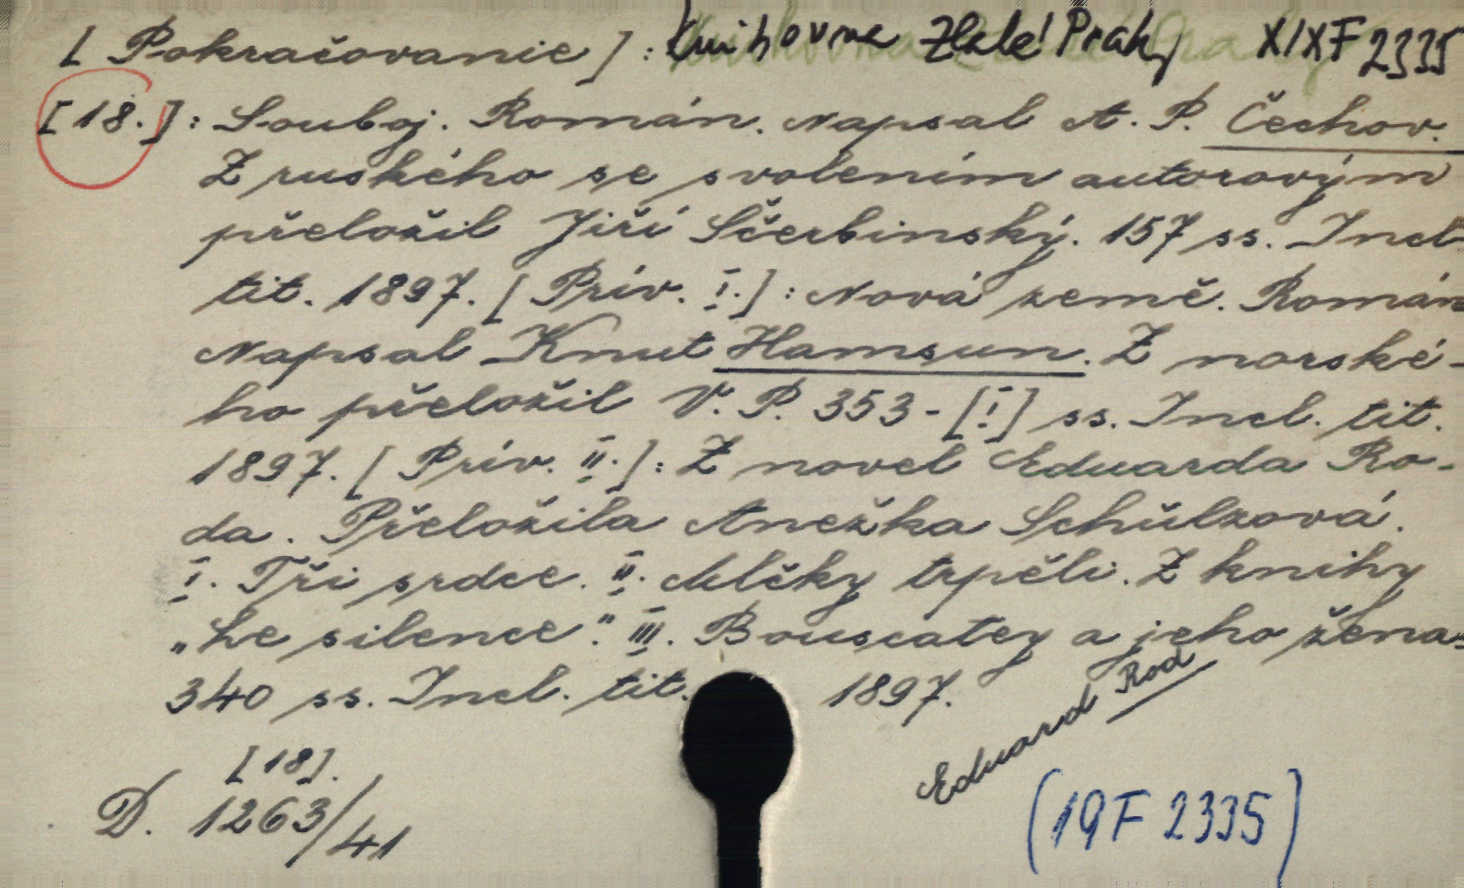 [Pokračovanie]: Knihovna Zlaté Prahy XIX F 2335
[18.]: Souboj. Román. Napsal A. P. Čechov.
Z ruského se svolením autorovým
přeložil Jiří Sčerbinský. 157 ss. Incl.
tit. 1897. [Prív. I.]: Nová země. Román
Napsal Knut Hamsun. Z norské-
ho přeložil V. P. 353-[I] ss. Incl. tit.
1897. [Prív. II.]: Z novel Eduarda Ro-
da. Přeložila Anežka Schulzová.
I. Tři srdce. II. Mlčky trpěli. Z knihy
„Le silence“. III. Bouscatey a jeho žena.
340 ss. Incl. tit. 1897.
Eduard Rod
[18].
D. 1263/41
(19 F 2335)